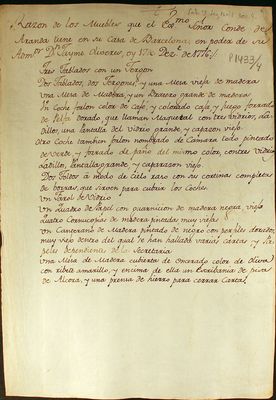 Razon de los Muebles que el Exmo. Señor Conde de
Aranda tiene en su Casa de Barcelona; en poder de su
Admor. Dn. Jayme Oliveres, oy 17 Dezre. de 1776.
P1433/4
Tres Tablados con un Gergon
Dos Tablados, dos Gergones, y una Mesa vieja de madera
Una Mesa de Madera, y un Brasero grande de madera
Un Coche falon color de Café, y colorado caja, y juego forrado
de Felpa dorado que llaman Maquebal con tres vidrios, la-
dillos, una pantalla del Vidrio grande, y caparzon viejo.
Otro Coche tambien falon nombrado de Camara todo pintado
de verde, y forrado de paño del mismo color, con tres Vidrios
Ladillos, pantalla grande, y caparazon viejo.
Dos Toldos á modo de Cielo raso con sus cortinas completas
de borras, que sirven para cubrir los Coches.
Un Farol de Vidrio
Un quadro de Papel con guarnicion de madera negra, viejo
quatro Cornucopias de madera pintadas muy viejas
Un Canterano de Madera pintado de negro con perfiles dorados,
muy viejo dentro del qual se han hallado varias cartas, y pa-
peles dependiente de la Secretaria
Una Mesa de Madera cubierta de Oncerado color de Oliva
con ribete amarillo, y encima de ella un Escribania de pieza
de Alcora, y una prensa de hierro para cerrar Cartas.